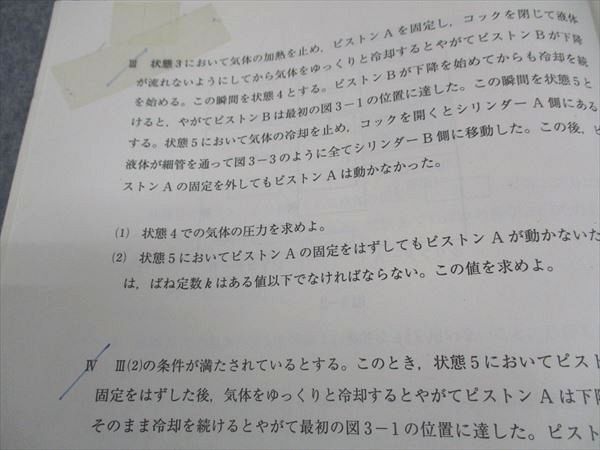 Ⅲ 状態3において気体の加熱を止め，ピストンAを固定し，コックを閉じて液体
が流れないようにしてから気体をゆっくりと冷却するとやがてピストンBが下降
を始める。この瞬間を状態4とする。ピストンBが下降を始めてからも冷却を続
けると，やがてピストンBは最初の図3－1の位置に達した。この瞬間を状態5と
する。状態5において気体の冷却を止め，コックを開くとシリンダーA側にある
液体が細管を通って図3－3のように全てシリンダーB側に移動した。この後，ピ
ストンAの固定を外してもピストンAは動かなかった。
(1) 状態4での気体の圧力を求めよ。
(2) 状態5においてピストンAの固定をはずしてもピストンAが動かないた
は，ばね定数kはある値以下でなければならない。この値を求めよ。
Ⅳ Ⅲ(2)の条件が満たされているとする。このとき，状態5においてピスト
固定をはずした後，気体をゆっくりと冷却するとやがてピストンAは下降
そのまま冷却を続けるとやがて最初の図3－1の位置に達した。ピスト